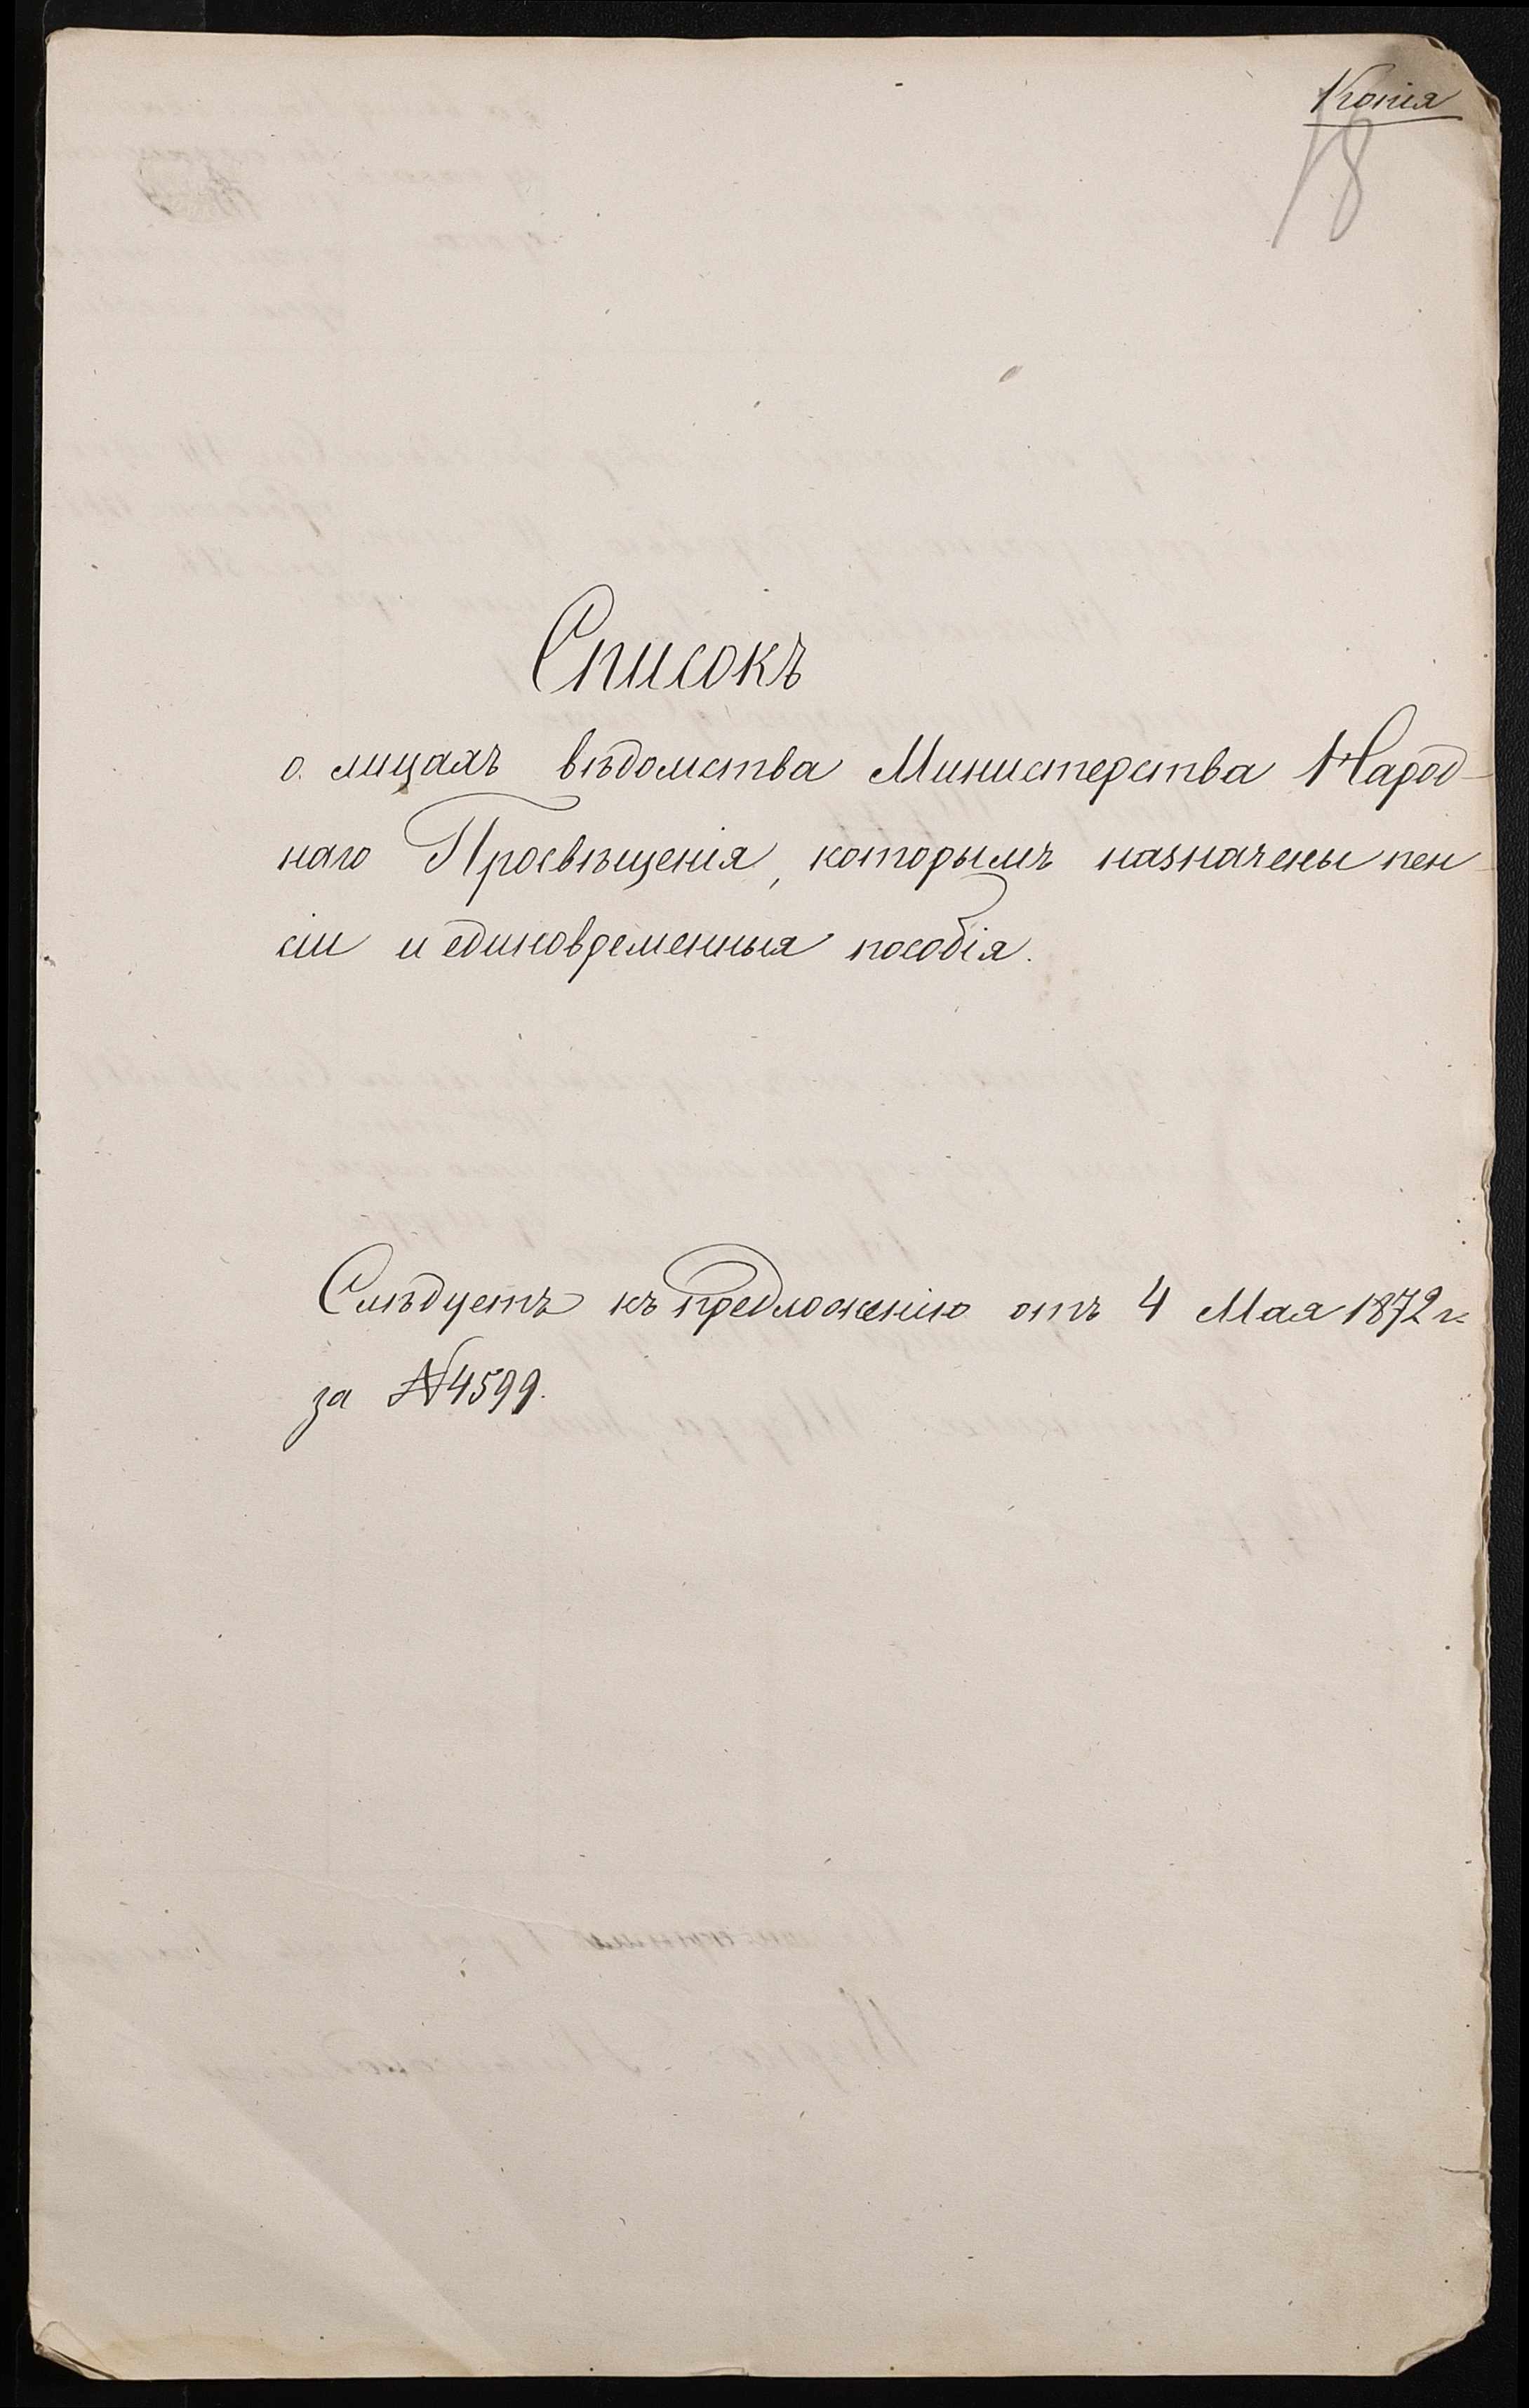 Копія
18
Списокъ
о лицахъ вѣдомства Министерства Народ-
наго Просвѣщенія, которымъ назначены пен-
сіи и единовременныя пособія.
Слѣдуетъ къ предложенію отъ 4 Мая 1872 г.
за № 4599.